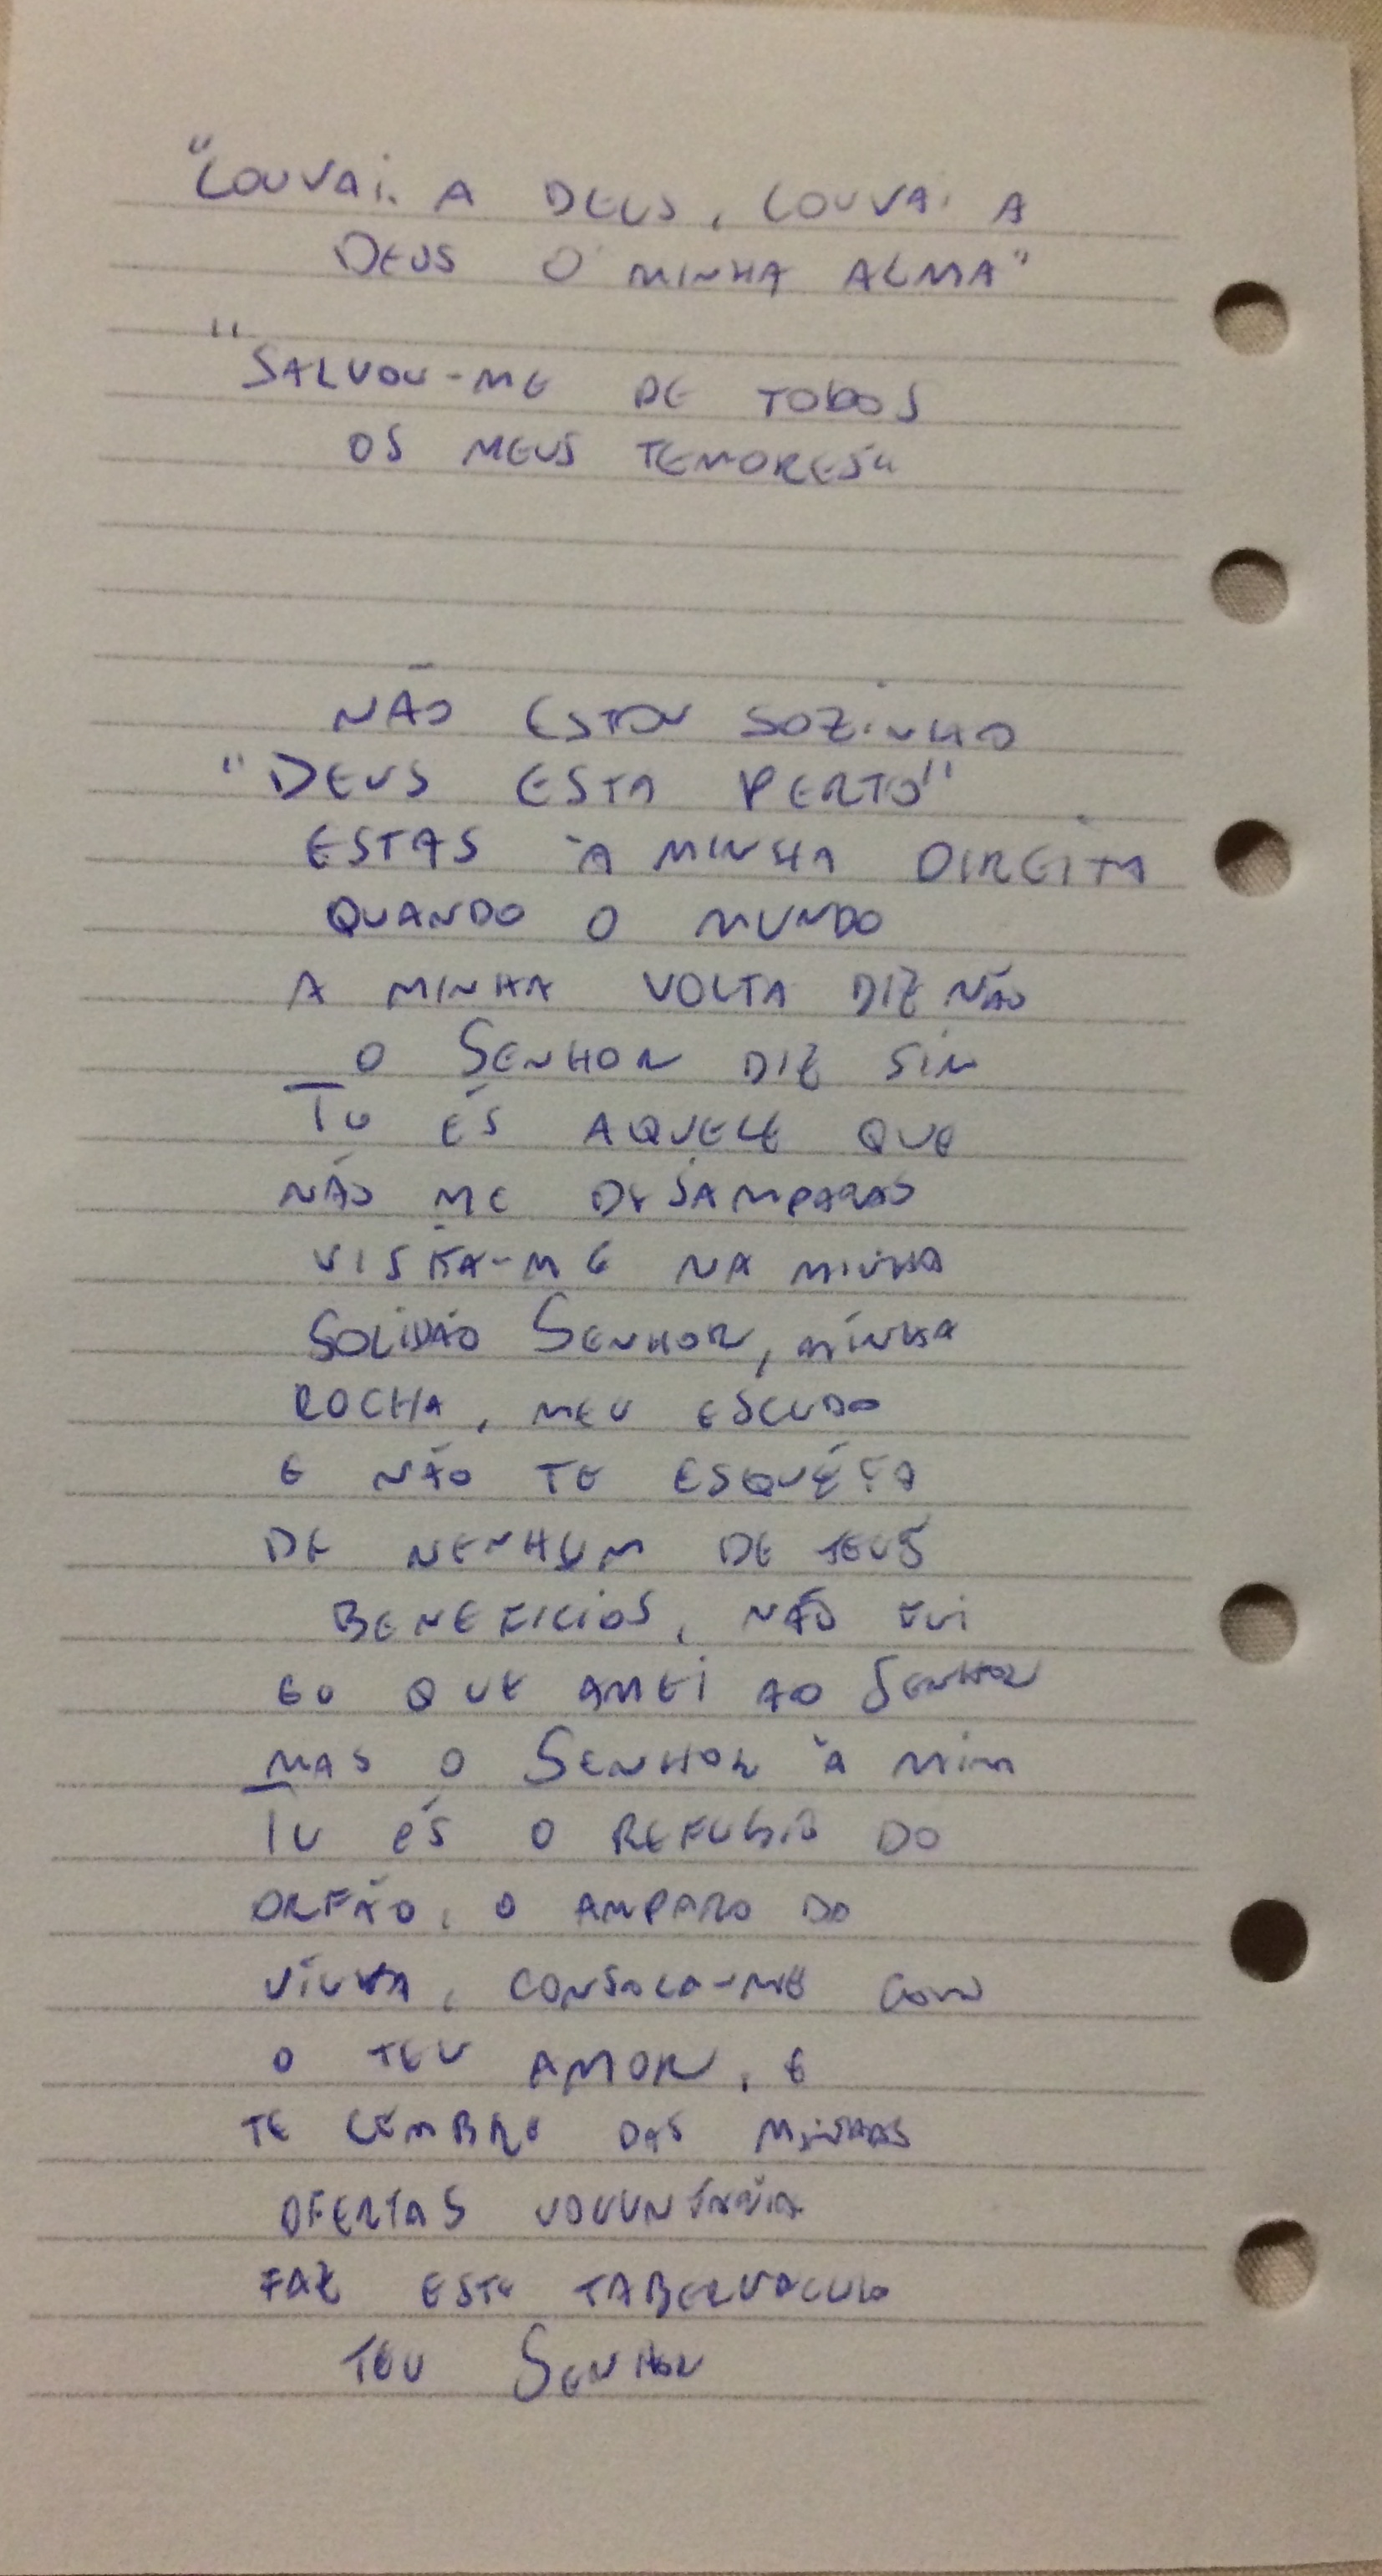 "LOUVAI A DEUS, LOUVAI A
DEUS O MINHA ALMA"
"SALVOU-ME DE TODOS
OS MEUS TEMORES"
NÃO ESTOU SOZINHO
"DEUS ESTA PERTO"
ESTAS À MINHA DIREITA
QUANDO O MUNDO
A MINHA VOLTA DIZ NÃO
O SENHOR DIZ SIM
TU ÉS AQUELE QUE
NÃO ME DESAMPARAS
VISITA-ME NA MINHA
SOLIDÃO SENHOR, MINHA
ROCHA, MEU ESCUDO
E NÃO TE ESQUEÇA
DE NENHUM DE TEUS
BENEFICIOS, NÃO FUI
EU QUE AMEI AO SENHOR
MAS O SENHOR À MIM
TU ÉS O REFUGIO DO
ORFÃO, O AMPARO DO
VIUVA, CONSOLA-ME COM
O TEU AMOR, E
TE LEMBRE DAS MINHAS
OFERTAS
FAZ ESTE TABERNACULO
TEU SENHOR